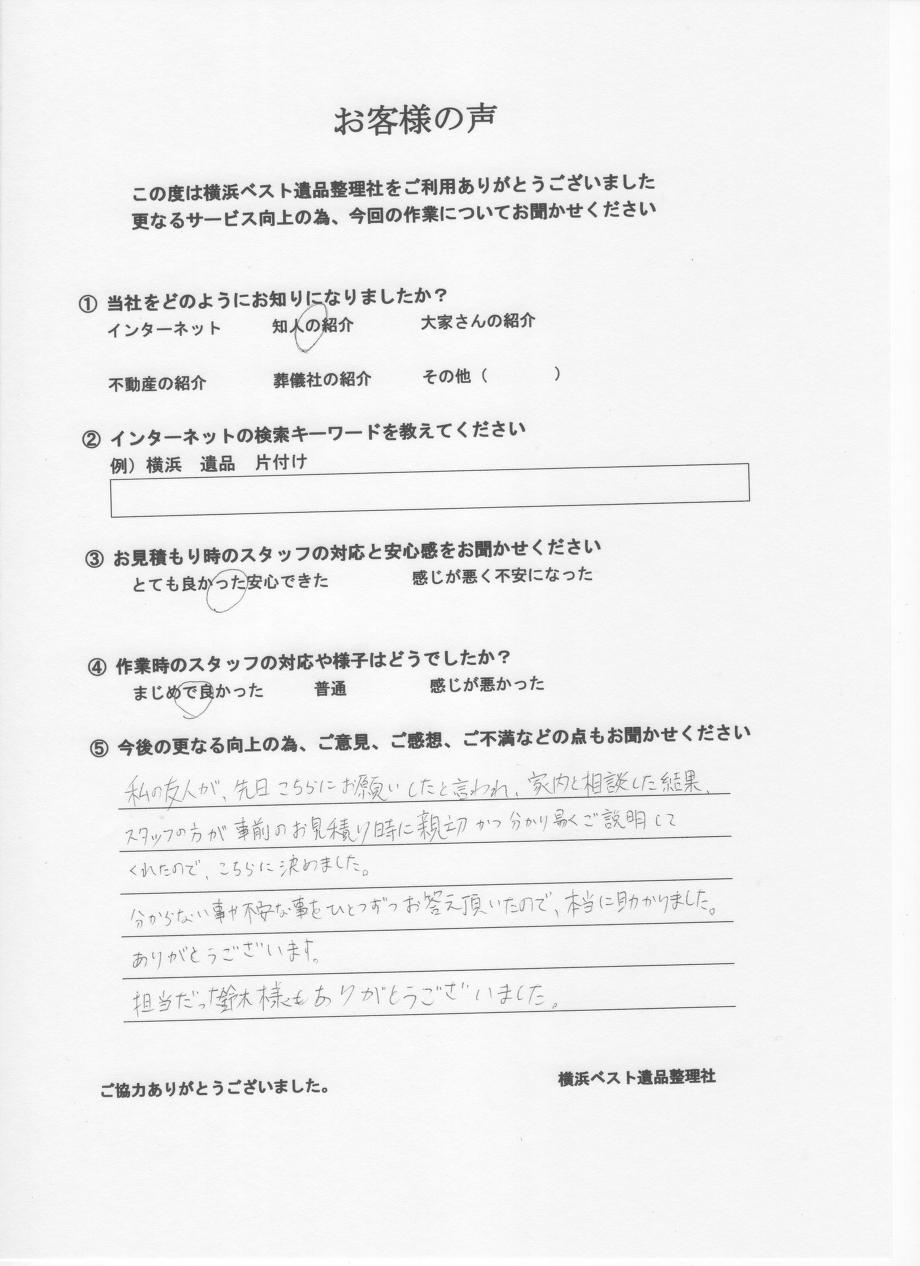 お客様の声
この度は横浜ベスト遺品整理社をご利用ありがとうございました
更なるサービス向上の為、今回の作業についてお聞かせください
① 当社をどのようにお知りになりましたか？
インターネット 知人の紹介 大家さんの紹介
不動産の紹介 葬儀社の紹介 その他（ ）
② インターネットの検索キーワードを教えてください
例）横浜 遺品 片付け
③ お見積もり時のスタッフの対応と安心感をお聞かせください
とても良かった安心できた 感じが悪く不安になった
④ 作業時のスタッフの対応や様子はどうでしたか？
まじめで良かった 普通 感じが悪かった
⑤ 今後の更なる向上の為、ご意見、ご感想、ご不満などの点もお聞かせください
私の友人が、先日こちらにお願いしたと言われ、家内と相談した結果、
スタッフの方が事前のお見積り時に親切かつ分かり易くご説明して
くれたので、こちらに決めました。
分からない事や不安な事をひとつずつお答え頂いたので、本当に助かりました。
ありがとうございます。
担当だった鈴木様もありがとうございました。
ご協力ありがとうございました。 横浜ベスト遺品整理社